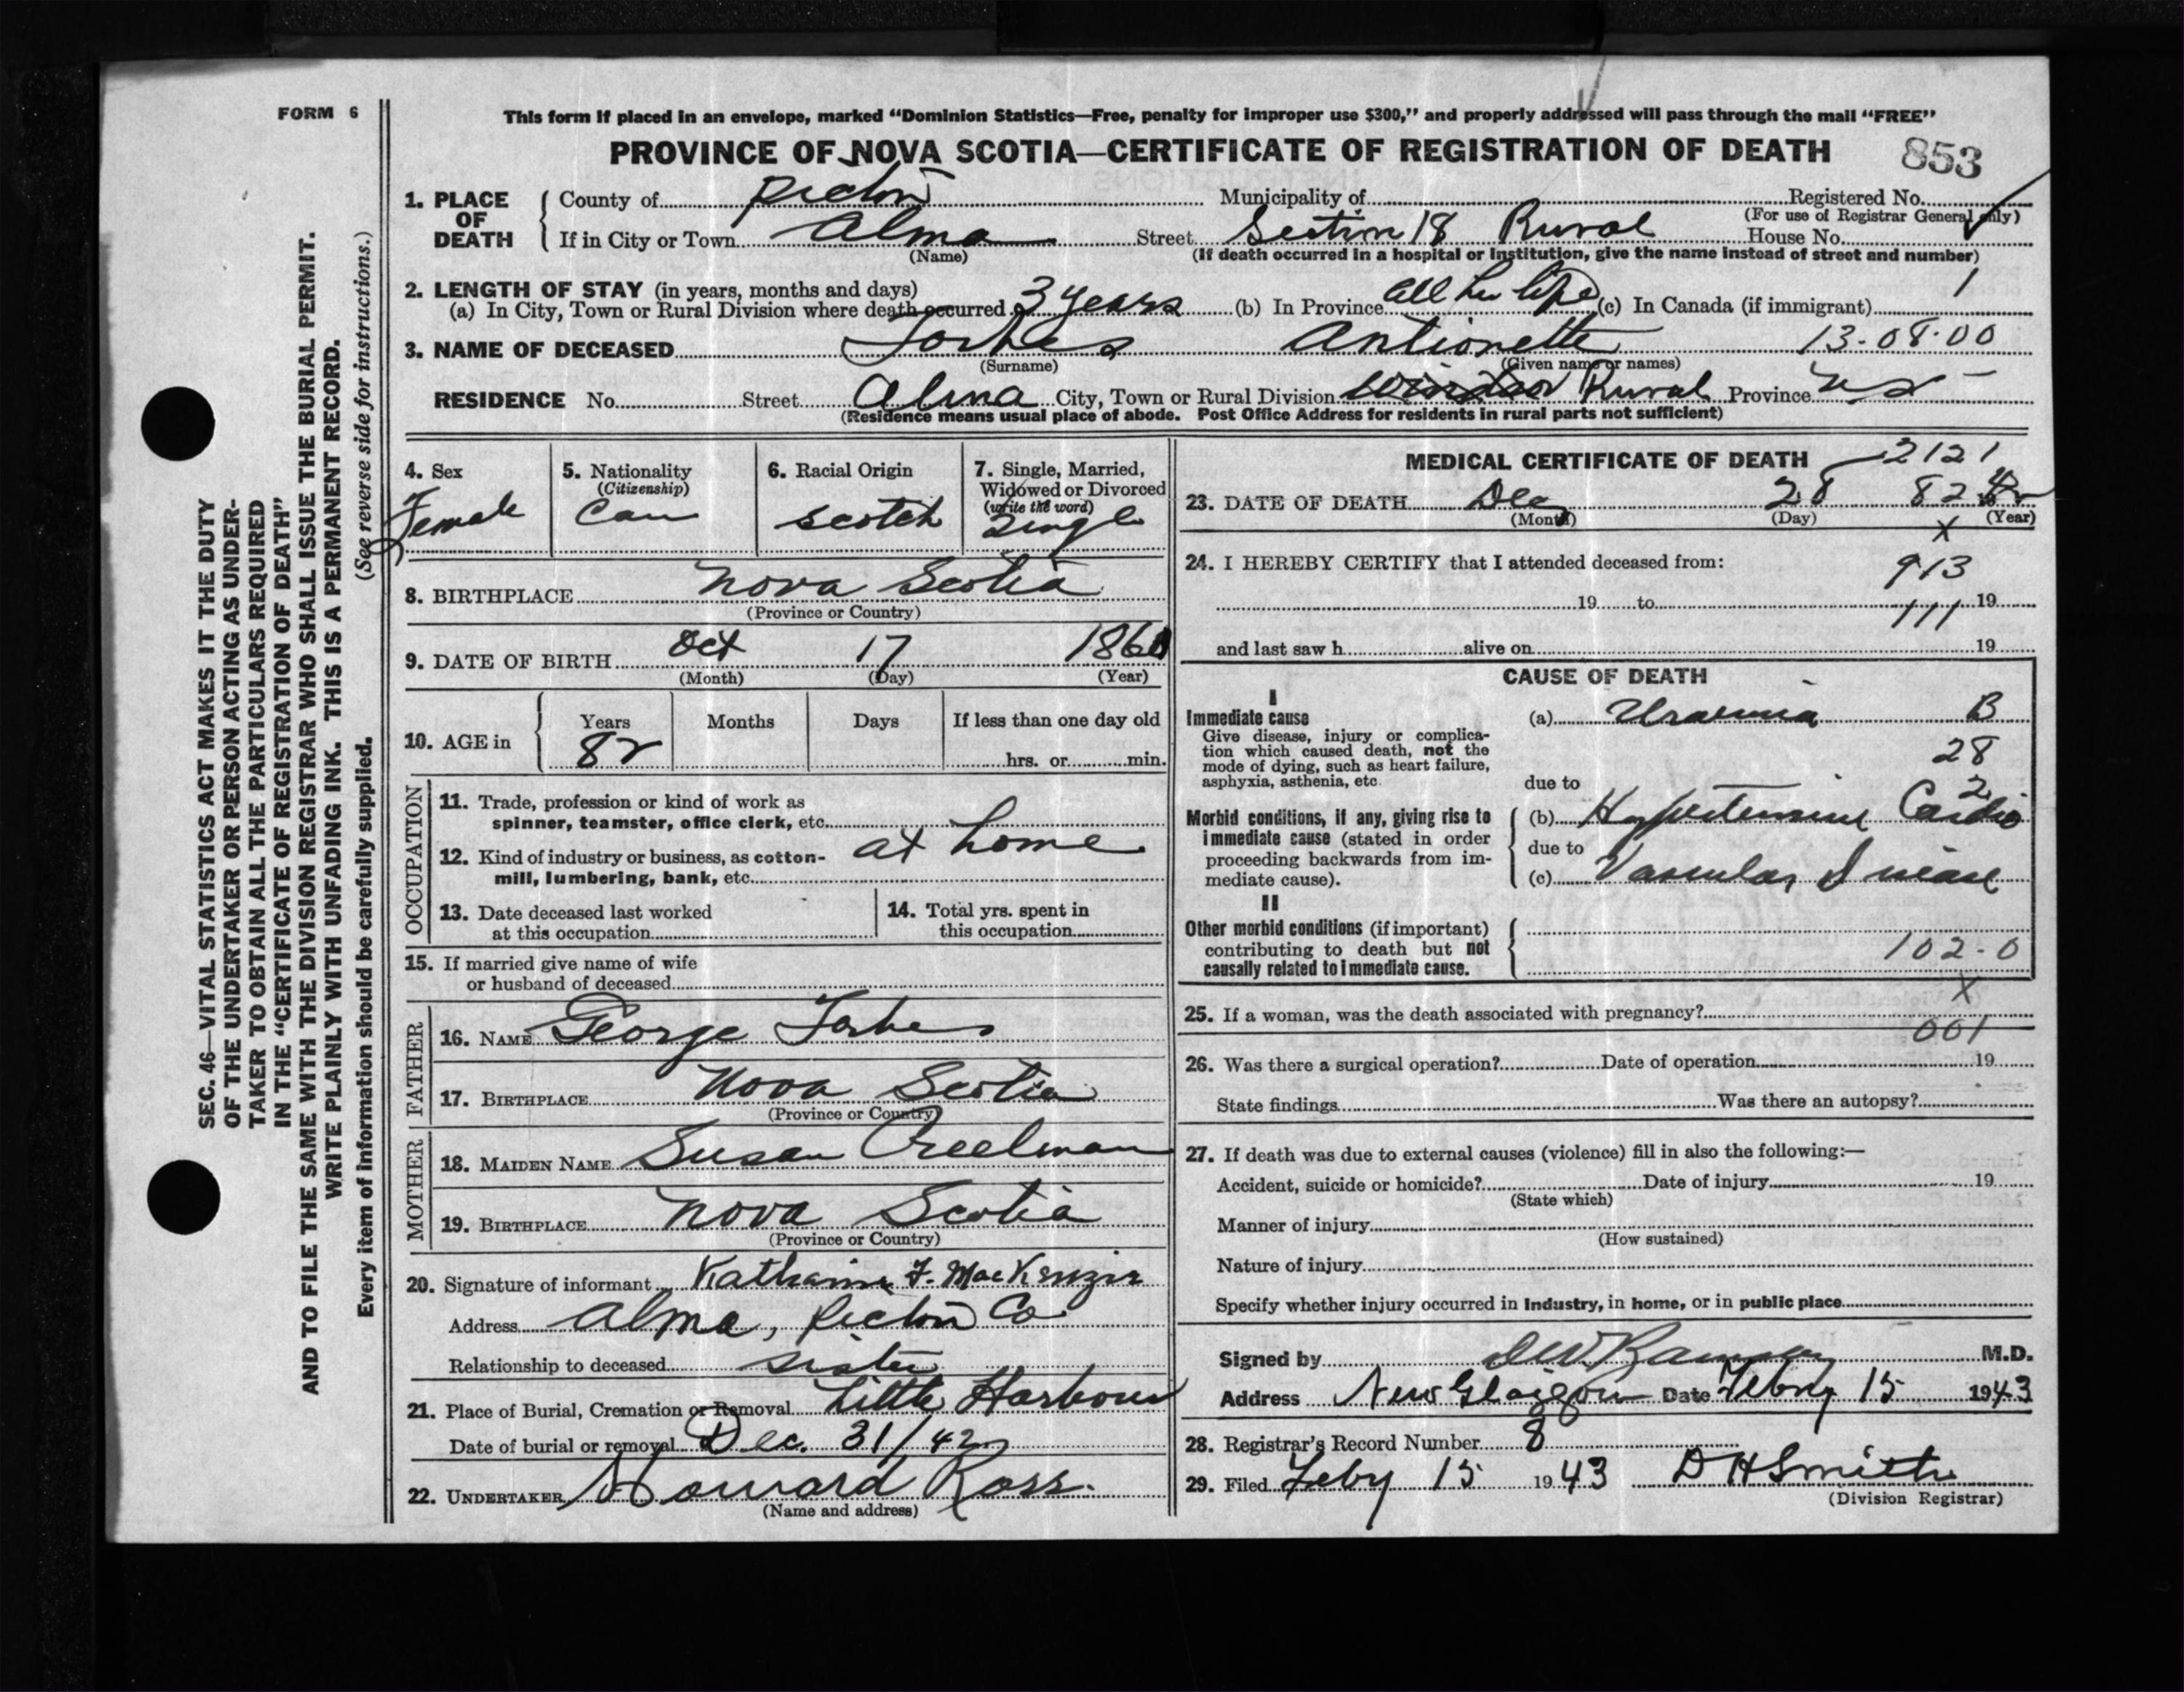 FORM 6
This form if placed in an envelope, marked "Dominion Statistics—Free, penalty for improper use $300," and properly addressed will pass through the mail "FREE"
PROVINCE OF NOVA SCOTIA—CERTIFICATE OF REGISTRATION OF DEATH 853
1. PLACE OF DEATH
County of Pictou Municipality of Registered No.
(For use of Registrar General only)
If in City or Town Alma Street Section 18 Rural House No.
(Name) (If death occurred in a hospital or institution, give the name instead of street and number)
2. LENGTH OF STAY (in years, months and days) 1
(a) In City, Town or Rural Division where death occurred 3 years (b) In Province all her life (c) In Canada (if immigrant)
3. NAME OF DECEASED Forbes Antionette 13-08-00
(Surname) (Given name or names)
RESIDENCE No. Street Alma City, Town or Rural Division Rural Province NS
(Residence means usual place of abode. Post Office Address for residents in rural parts not sufficient)
4. Sex
Female
5. Nationality
(Citizenship)
Can
6. Racial Origin
Scotch
7. Single, Married,
Widowed or Divorced
(write the word)
Single
8. BIRTHPLACE Nova Scotia
(Province or Country)
9. DATE OF BIRTH Oct 17 1860
(Month) (Day) (Year)
10. AGE in
Years Months Days If less than one day old
82 hrs. or min.
OCCUPATION
11. Trade, profession or kind of work as
spinner, teamster, office clerk, etc.
at home
12. Kind of industry or business, as cotton-
mill, lumbering, bank, etc.
13. Date deceased last worked
at this occupation
14. Total yrs. spent in
this occupation
15. If married give name of wife
or husband of deceased
FATHER
16. NAME George Forbes
17. BIRTHPLACE Nova Scotia
(Province or Country)
MOTHER
18. MAIDEN NAME Susan Creelman
19. BIRTHPLACE Nova Scotia
(Province or Country)
20. Signature of informant Katharine F. MacKenzie
Address Alma, Pictou Co
Relationship to deceased sister
21. Place of Burial, Cremation or Removal Little Harbour
Date of burial or removal Dec. 31/42
22. UNDERTAKER Howard Ross.
(Name and address)
MEDICAL CERTIFICATE OF DEATH 2121
23. DATE OF DEATH Dec 28 82 42
(Month) (Day) (Year)
X
24. I HEREBY CERTIFY that I attended deceased from:
913
19 to 19
111
and last saw h alive on 19
CAUSE OF DEATH
I
Immediate cause
Give disease, injury or complica-
tion which caused death, not the
mode of dying, such as heart failure,
asphyxia, asthenia, etc.
(a) Uraemia B
28
due to 2
Morbid conditions, if any, giving rise to
immediate cause (stated in order
proceeding backwards from im-
mediate cause).
(b) Hypertensive Cardio
due to
(c) Vascular Disease
II
Other morbid conditions (if important)
contributing to death but not
causally related to immediate cause.
102-0
X
25. If a woman, was the death associated with pregnancy?
001
26. Was there a surgical operation? Date of operation 19
State findings Was there an autopsy?
27. If death was due to external causes (violence) fill in also the following:—
Accident, suicide or homicide? Date of injury 19
(State which)
Manner of injury
(How sustained)
Nature of injury
Specify whether injury occurred in industry, in home, or in public place
Signed by M.D.
Address New Glasgow Date Febry 15 1943
28. Registrar's Record Number 8
29. Filed Feby 15 1943 D H Smith
(Division Registrar)
SEC. 46—VITAL STATISTICS ACT MAKES IT THE DUTY
OF THE UNDERTAKER OR PERSON ACTING AS UNDER-
TAKER TO OBTAIN ALL THE PARTICULARS REQUIRED
IN THE "CERTIFICATE OF REGISTRATION OF DEATH"
AND TO FILE THE SAME WITH THE DIVISION REGISTRAR WHO SHALL ISSUE THE BURIAL PERMIT.
WRITE PLAINLY WITH UNFADING INK. THIS IS A PERMANENT RECORD.
Every item of information should be carefully supplied. (See reverse side for instructions.)